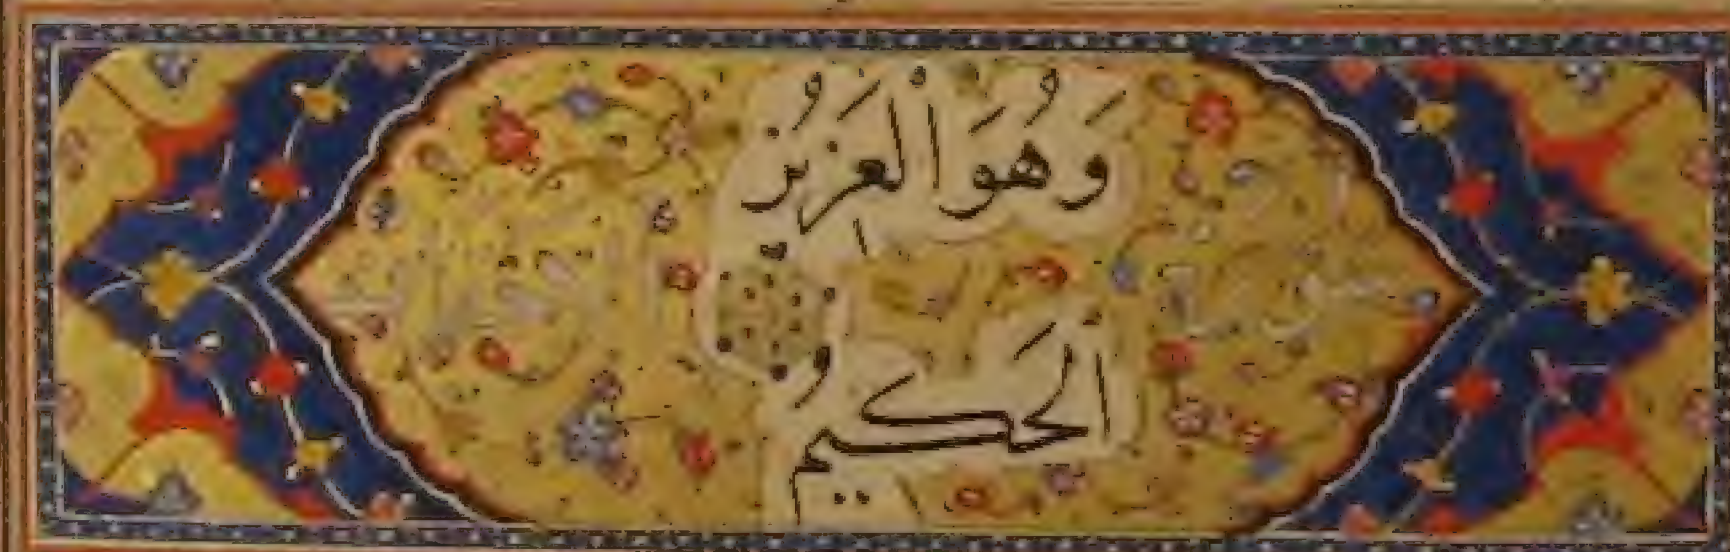 وَهُوَ الْعَزِيزُ
الْحَكِيمُ